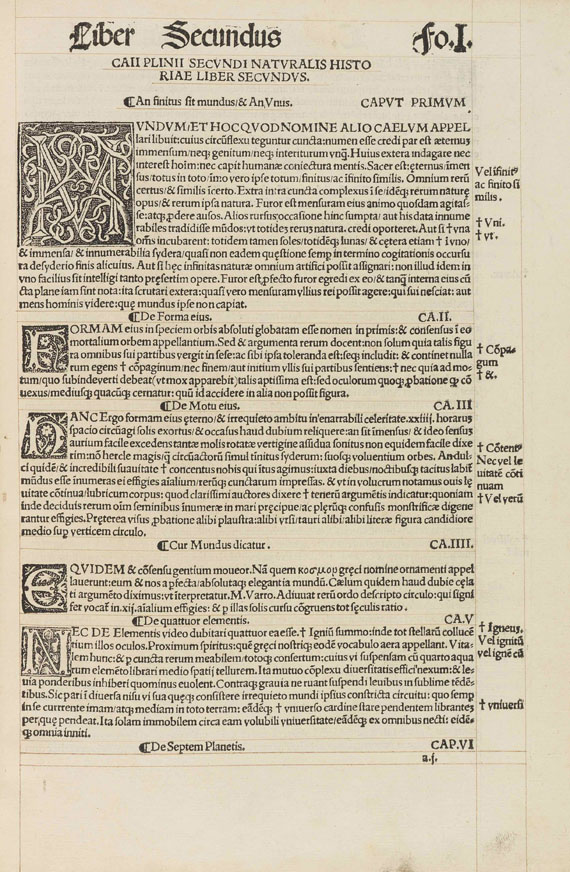 Liber Secundus Fo.I.
CAII PLINII SECVNDI NATVRALIS HISTO
RIAE LIBER SECVNDVS.
¶An finitus sit mundus/& An Vnus. CAPVT PRIMVM
MVNDVM/ET HOC QVOD NOMINE ALIO CAELVM APPEL
lari libuit:cuius circūflexu teguntur cuncta:numen esse credi par est æternum
immensum/neq; genitum/neq; interiturum vnq̄. Huius extera indagare nec
interest hoīm:nec capit humanæ coniectura mentis. Sacer est:æternus:īmen
sus/totus in toto/īmo vero ipse totum/finitus/ac īfinito similis. Omnium rerū
certus/& similis īcerto. Extra intra cuncta complexus ī se/idēq; rerum naturę
opus/& rerum ipsa natura. Furor est mensuram eius animo quosdam agitas-
se:atq; ꝓdere ausos. Alios rursus/occasione hinc sumpta/ aut his data innume
rabiles tradidisse mūdos:vt totides rerus natura. credi oporteret. Aut si † vna
om̄s incubarent: totidem tamen soles/totidēq; lunas/ & cętera etiam † ī vno/
& immensa/ & innumerabilia sydera/quasi non eadem quęstione semp in termino cogitationis occursu
ra desyderio finis alicuius. Aut si hęc infinitas naturæ omnium artifici possit assignari:non illud idem in
vno facilius sit intelligi tanto pręsertim opere. Furor est/ꝓfecto furor egredi ex eo/& tanq̄ interna eius cū
cta plane iam sint nota:ita scrutari extera:quasi vero mensuram vllius rei possit agere:qui sui nesciat: aut
mens hominis videre:quę mundus ipse non capiat.
¶De Forma eius. CA.II.
FORMAM eius in speciem orbis absoluti globatam esse nomen in primis:& consensus ī eo
mortalium orbem appellantium. Sed & argumenta rerum docent:non solum quia talis figu
ra omnibus sui partibus vergit in sese:ac sibi ipsa toleranda est:seq; includit: & continet nulla
rum egens † cōpaginum/nec finem/aut initium vllis sui partibus sentiens: † nec quia ad mo-
tum/quo subinde verti debeat (vt mox apparebit) talis aptissima est:sed oculorum quoq; ꝓbatione ꝙ cō
uexus/mediusq; quacūq; cernatur: quū id accidere in alia non possit figura.
¶De Motu eius. CA.III
HANC Ergo formam eius ęterno/& irrequieto ambitu īn'enarrabili celeritate.xxiiij. horarum
spacio circūagi solis exortus/& occasus haud dubium reliquere:an sit īmensus/ & ideo sensus
aurium facile excedens tantæ molis rotatæ vertigine assidua sonitus non equidem facile dixe
rim:nō hercle magis/q̄ circūactorū simul tinnitus syderum: suosq; voluentium orbes. An dul-
ci quidē/& incredibili suauitate † concentus nobis qui ītus agimus:iuxta diebus/noctibusq; tacitus labit̄
mūdus esse īnumeras ei effigies aīalium/rerūq; cunctarum impressas. & vt in volucrum notamus ouis lę
uitate cōtinua/lubricum corpus: quod clarissimi auctores dixere † tenerū argumētis indicatur:quoniam
inde deciduis rerum oīm seminibus īnumeræ in mari pręcipue/ac plęrūq; confusis monstrificæ digene
rantur effigies. Pręterea visus ꝓbatione alibi plaustra:alibi vrsi/tauri alibi/alibi literæ figura candidiore
medio sup verticem circulo.
¶Cur Mundus dicatur. CA.IIII.
EQVIDEM & cōsensu gentium moueor. Nā quem κοσμορ gręci nomine ornamenti appel
lauerunt:eum & nos a ꝑfecta/absolutaq; elegantia mundū. Cælum quidem haud dubie cęla
ti argumēto diximus:vt īterpretatur. M. Varro. Adiuuat rerū ordo descripto circulo:qui signi
fer vocat̄ in.xij.aīalium effigies: & ꝑ illas solis cursu cōgruens tot sęculis ratio.
¶De quattuor elementis. CA.V
NEC DE Elementis video dubitari quattuor ea esse. † Igniū summo:inde tot stellarū collucē
tium illos oculos. Proximum spiritus: quē gręci nostriq; eodē vocabulo aera appellant. Vita-
lem hunc:& ꝑ cuncta rerum meabilem/totoq; consertum:cuius vi suspensam cū quarto aqua
rum elemēto librari medio spatij tellurem. Ita mutuo cōplexu diuersitatis effici'nexum:& le-
uia ponderibus inhiberi quominus euolent. Contraq; grauia ne ruant suspendi leuibus in sublime tēdē-
tibus. Sic pari ī diuersa nisu vi sua quęq; consistere irrequieto mundi ipsius constricta circuitu: quo semꝑ
in se currente imam/atq; mediam in toto terram: eādēq; † vniuerso cardine stare pendentem librantes
per/quę pendeat. Ita solam immobilem circa eam volubili vniuersitate/eādēq; ex omnibus necti: eidē-
q; omnia inniti.
¶De Septem Planetis. CAP.VI
a.j.
Vel īfinit'
ac finito si
milis.
† Vni.
† vt.
† Cōpa-
gum
† &.
† Cōtent'
Nec vel le
uitatē cōti
nuam
† Vel verū
† Igneus.
Vel ignitū
vel ignē cū
† vniuersi